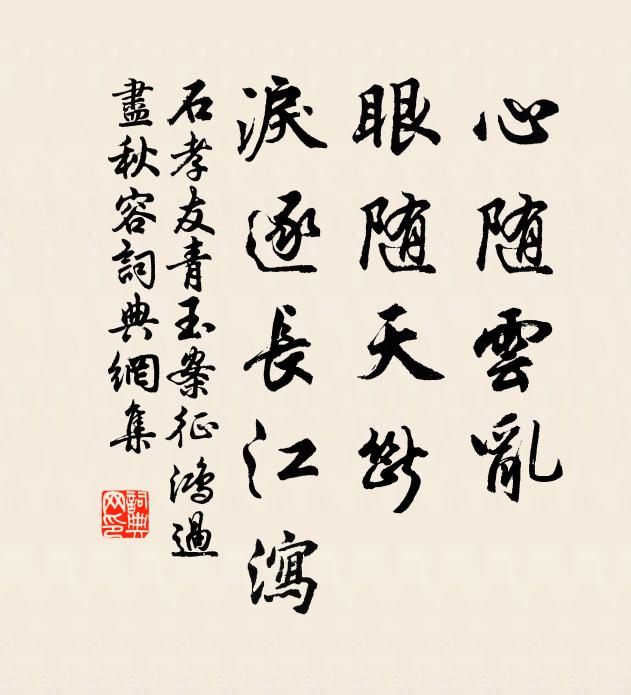 心随雲亂
眼随天斷
淚逐長江瀉
石孝友青玉案征鴻過
盡秋容詞典網集
詞典
网印